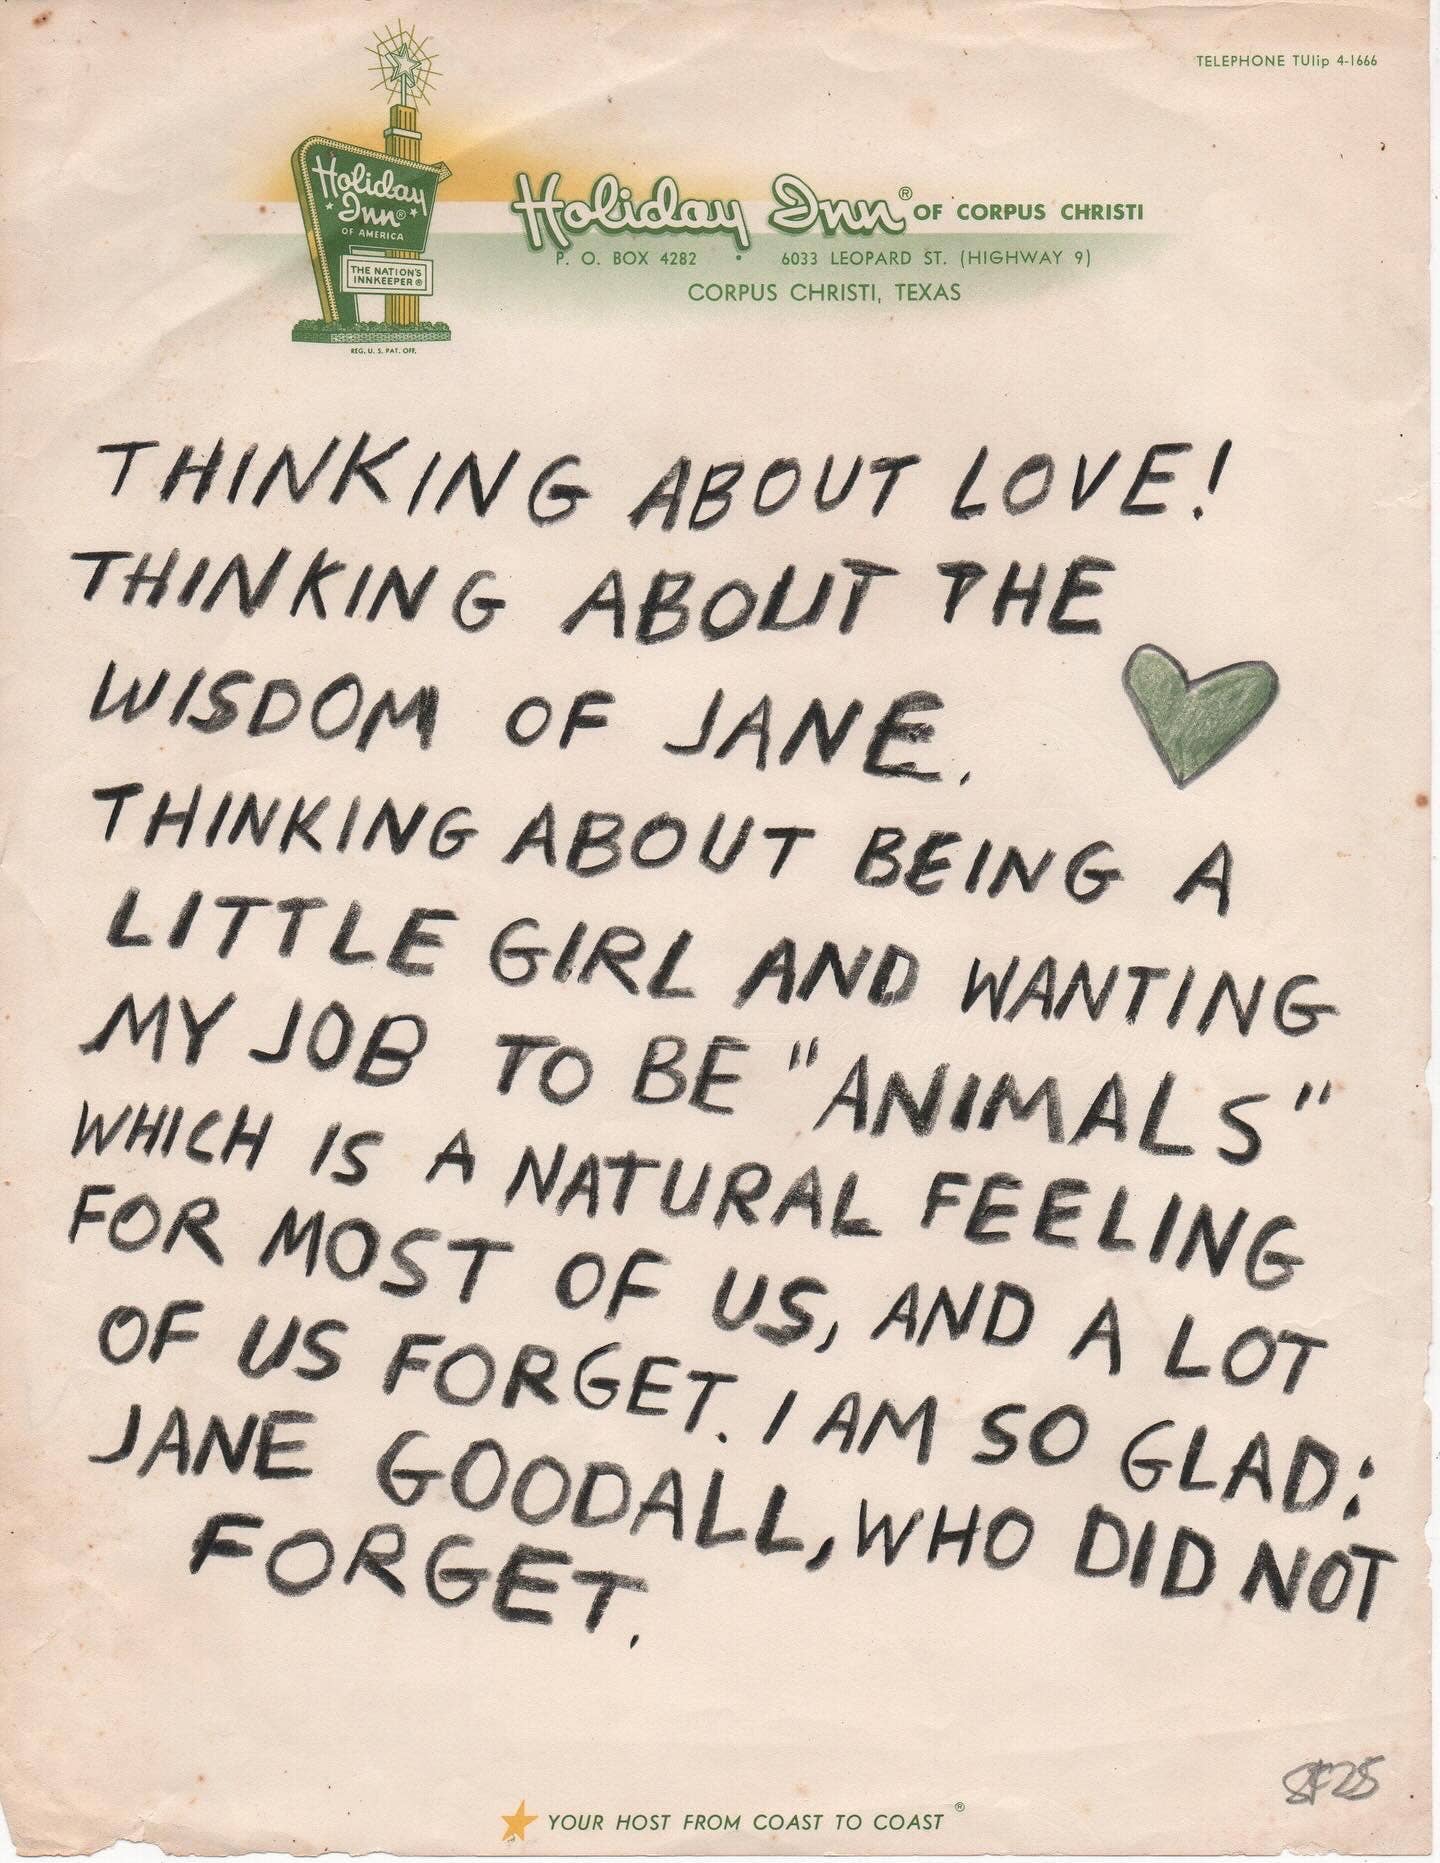 TELEPHONE TUlip 4-1666
Holiday
Inn®
OF AMERICA
THE NATION'S
INNKEEPER®
REG. U. S. PAT. OFF.
Holiday Inn® OF CORPUS CHRISTI
P. O. BOX 4282 • 6033 LEOPARD ST. (HIGHWAY 9)
CORPUS CHRISTI, TEXAS
THINKING ABOUT LOVE!
THINKING ABOUT THE
WISDOM OF JANE.
THINKING ABOUT BEING A
LITTLE GIRL AND WANTING
MY JOB TO BE "ANIMALS"
WHICH IS A NATURAL FEELING
FOR MOST OF US, AND A LOT
OF US FORGET. I AM SO GLAD:
JANE GOODALL, WHO DID NOT
FORGET.
SF25
YOUR HOST FROM COAST TO COAST®